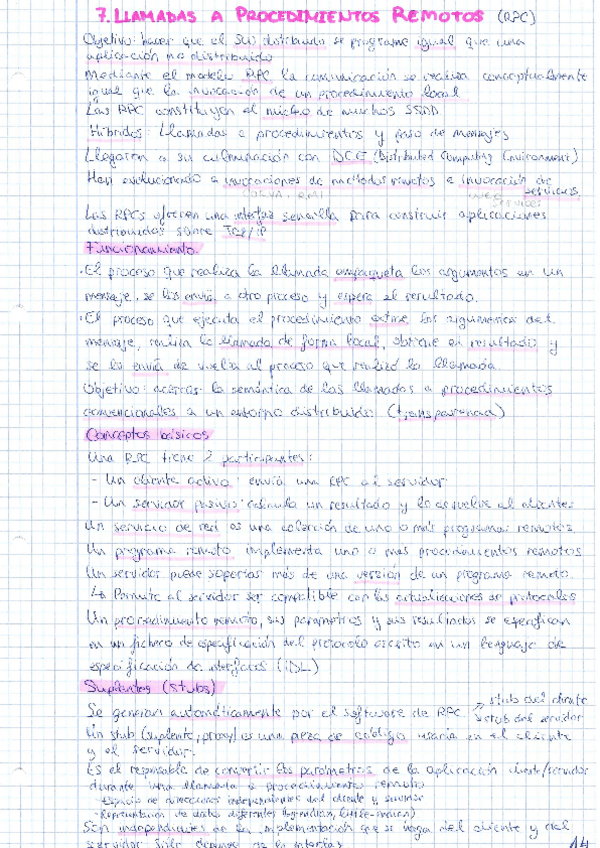 7. LLAMADAS A PROCEDIMIENTOS REMOTOS (RPC)
Objetivo: hacer que el SW distribuido se programe igual que una
aplicación no distribuida
Mediante el modelo RPC la comunicación se realiza conceptualmente
igual que la invocación de un procedimiento local
Las RPC constituyen el núcleo de muchos SSDD
Híbridos: Llamadas a procedimientos y paso de mensajes
Llegaron a su culminación con DCE (Distributed Computing Environment)
Han evolucionado a invocaciones de métodos remotos e invocación de
servicios
CORBA, RMI
web services
Las RPCs ofrecen una interfaz sencilla para construir aplicaciones
distribuidas sobre TCP/IP
Funcionamiento
· El proceso que realiza la llamada empaqueta los argumentos en un
mensaje, se los envía a otro proceso y espera el resultado.
· El proceso que ejecuta el procedimiento extrae los argumentos del
mensaje, realiza la llamada de forma local, obtiene el resultado y
se lo envía de vuelta al proceso que realizó la llamada
Objetivo: acercar la semántica de las llamadas a procedimientos
convencionales a un entorno distribuido (transparencia)
Conceptos básicos
Una RPC tiene 2 participantes:
- Un cliente activo: envía una RPC al servidor
- Un servidor pasivo: calcula un resultado y lo devuelve al cliente
Un servicio de red es una colección de uno o más programas remotos
Un programa remoto implementa uno o más procedimientos remotos
Un servidor puede soportar más de una versión de un programa remoto.
↳ Permite al servidor ser compatible con las actualizaciones de protocolos
Un procedimiento remoto, sus parámetros y sus resultados se especifican
en un fichero de especificación del protocolo escrito en un lenguaje de
especificación de interfaces (IDL)
Suplentes (stubs)
Se generan automáticamente por el software de RPC
→ stub del cliente
→ stub del servidor
Un stub (suplente, proxy) es una pieza de código usada en el cliente
y el servidor.
Es el responsable de convertir los parámetros de la aplicación cliente/servidor
durante una llamada a procedimiento remoto
- Espacio de direcciones independientes del cliente y servidor
- Representación de datos diferentes (big-endian, little-endian)
Son independientes de la implementación que se haga del cliente y del
servidor. Solo depende de la interfaz
14